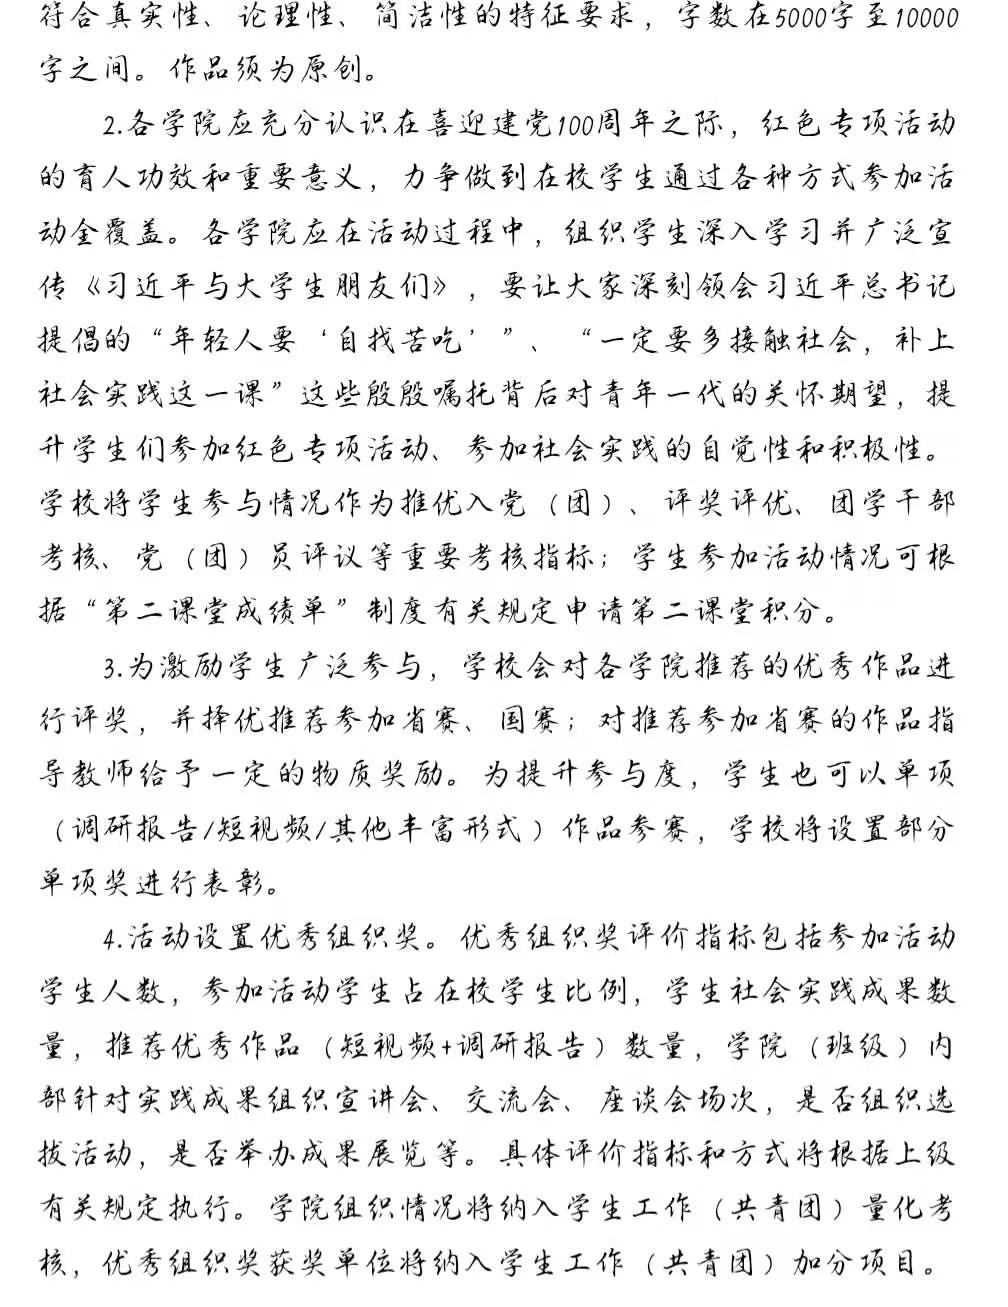 符合真实性、论理性、简洁性的特征要求，字数在5000字至10000
字之间。作品须为原创。
2.各学院应充分认识在喜迎建党100周年之际，红色专项活动
的育人功效和重要意义，力争做到在校学生通过各种方式参加活
动全覆盖。各学院应在活动过程中，组织学生深入学习并广泛宣
传《习近平与大学生朋友们》，要让大家深刻领会习近平总书记
提倡的“年轻人要‘自找苦吃’”、“一定要多接触社会，补上
社会实践这一课”这些殷殷嘱托背后对青年一代的关怀期望，提
升学生们参加红色专项活动、参加社会实践的自觉性和积极性。
学校将学生参与情况作为推优入党（团）、评奖评优、团学干部
考核、党（团）员评议等重要考核指标；学生参加活动情况可根
据“第二课堂成绩单”制度有关规定申请第二课堂积分。
3.为激励学生广泛参与，学校会对各学院推荐的优秀作品进
行评奖，并择优推荐参加省赛、国赛；对推荐参加省赛的作品指
导教师给予一定的物质奖励。为提升参与度，学生也可以单项
（调研报告/短视频/其他丰富形式）作品参赛，学校将设置部分
单项奖进行表彰。
4.活动设置优秀组织奖。优秀组织奖评价指标包括参加活动
学生人数，参加活动学生占在校学生比例，学生社会实践成果数
量，推荐优秀作品（短视频+调研报告）数量，学院（班级）内
部针对实践成果组织宣讲会、交流会、座谈会场次，是否组织选
拔活动，是否举办成果展览等。具体评价指标和方式将根据上级
有关规定执行。学院组织情况将纳入学生工作（共青团）量化考
核，优秀组织奖获奖单位将纳入学生工作（共青团）加分项目。